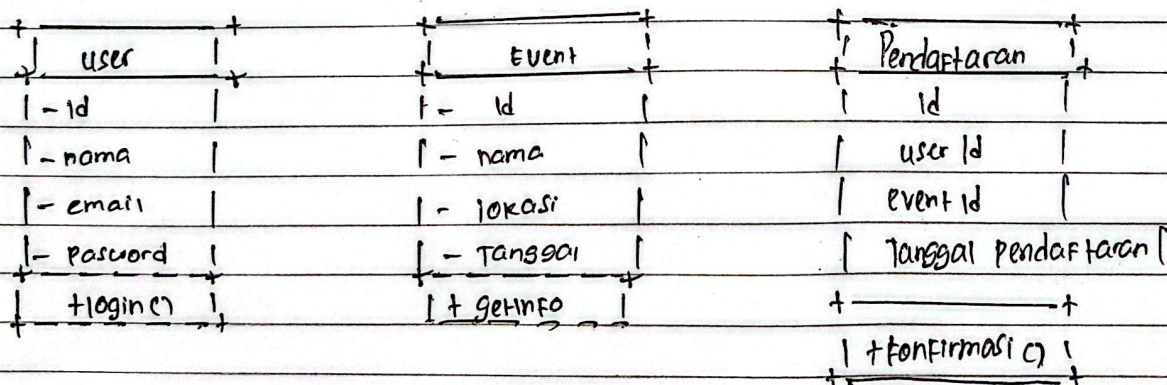 user
- id
- nama
- email
- pasword
+login()
Event
- id
- nama
- lokasi
- Tanggal
+ getinfo
Pendaftaran
id
user id
event id
Tanggal pendaftaran
+konfirmasi ()